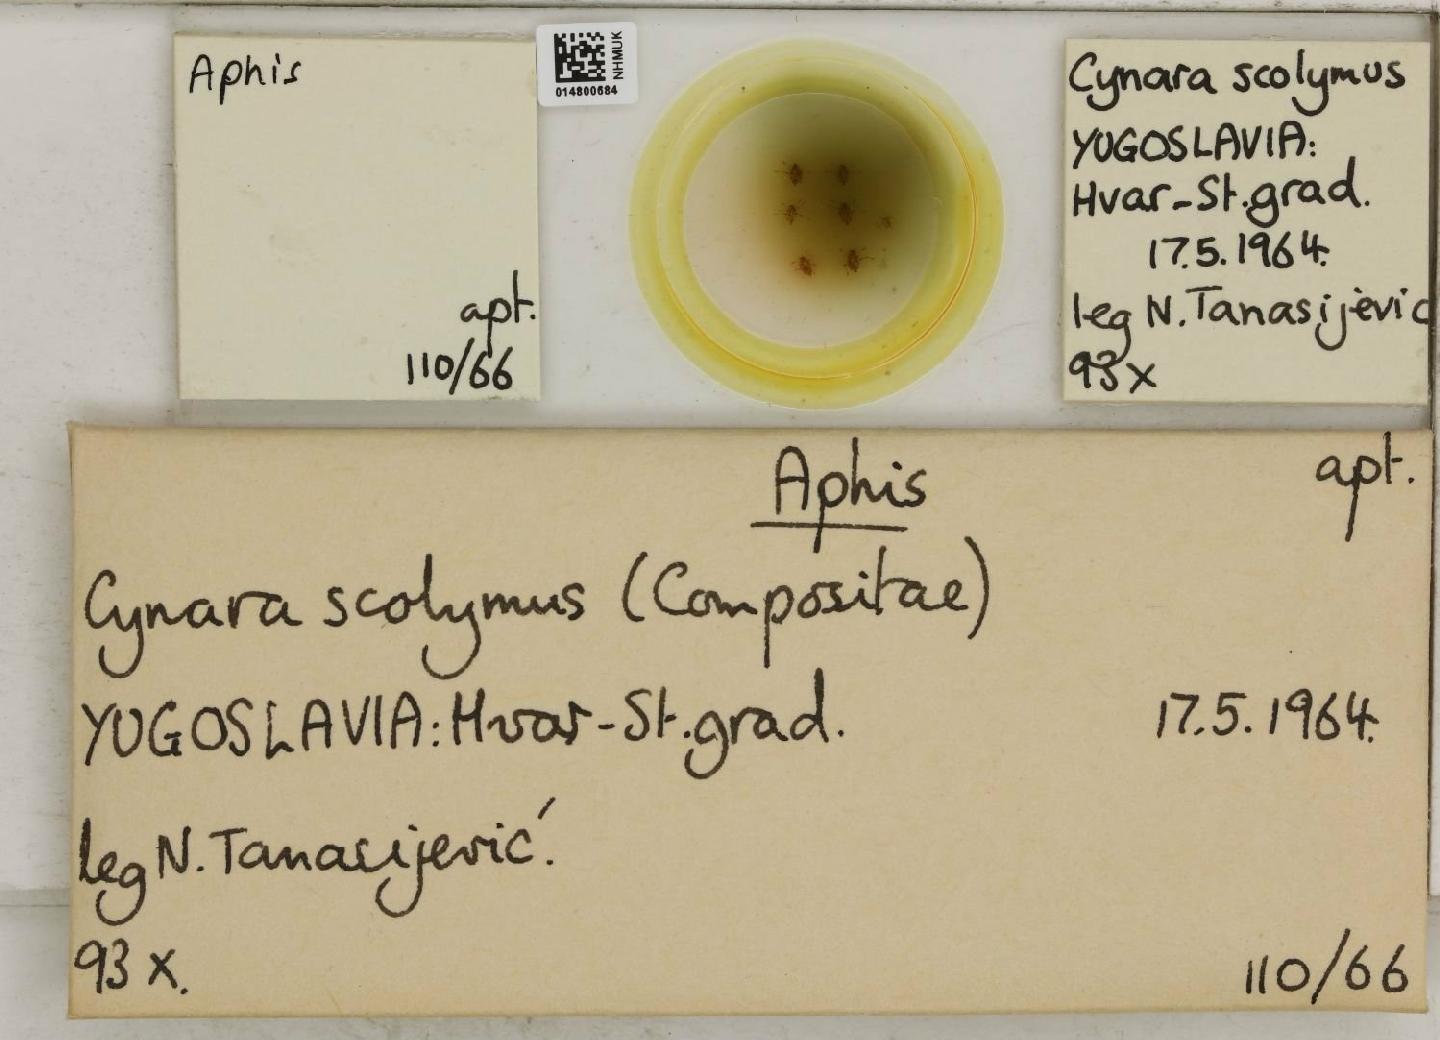 Aphis
apt.
110/66
NHMUK
014800684
Cynara scolymus
YUGOSLAVIA:
Hvar-St.grad.
17.5.1964.
leg N. Tanasijevic
93x
Aphis
apt.
Cynara scolymus (Compositae)
YUGOSLAVIA: Hvar-St.grad.
17.5.1964.
leg N. Tanasijević.
93 x.
110/66